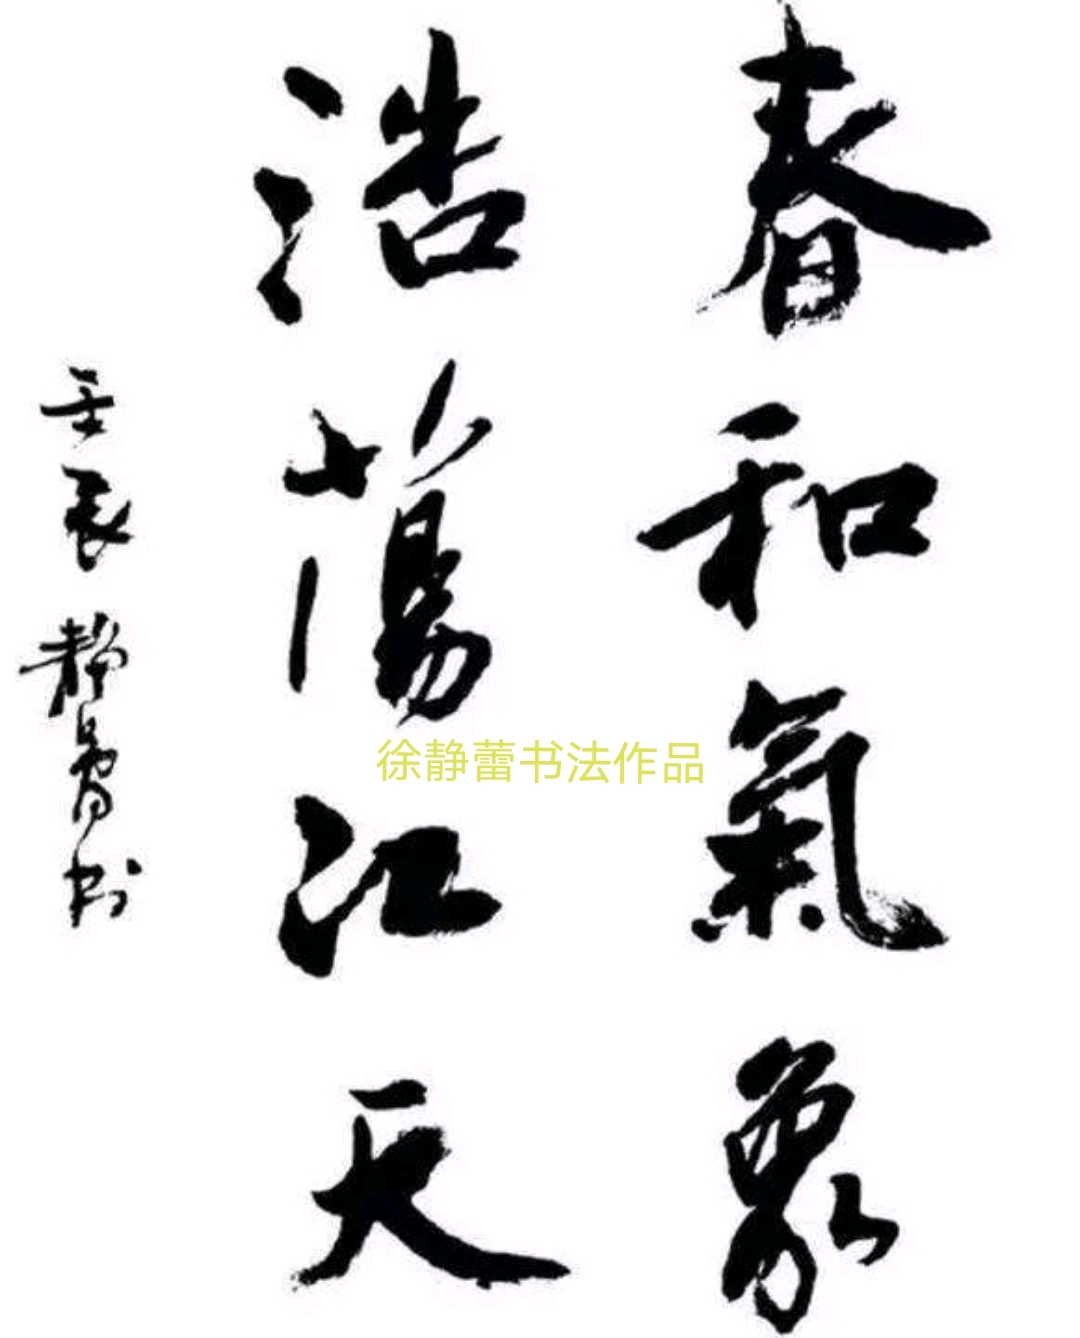 春和氣象
浩蕩江天
壬辰 靜蕾書
徐静蕾书法作品